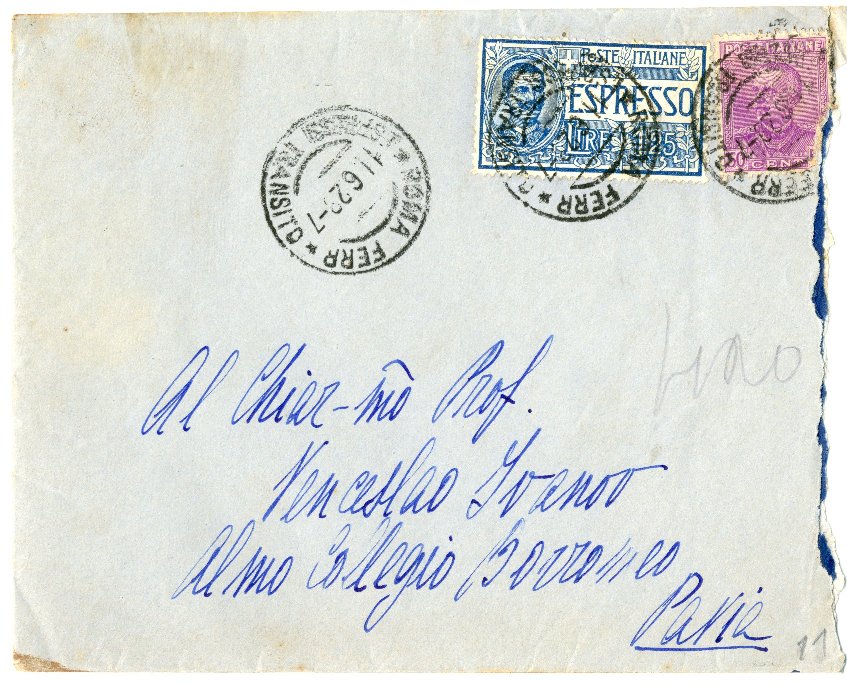 POSTE ITALIANE
ESPRESSO
LIRE 1,25
POSTE ITALIANE
CENT
ROMA FERR
TRANSITO
11.6.29-7
Al Chiar-mō Prof.
Venceslao Ivanov
Almo Collegio Borromeo
Pavia
11